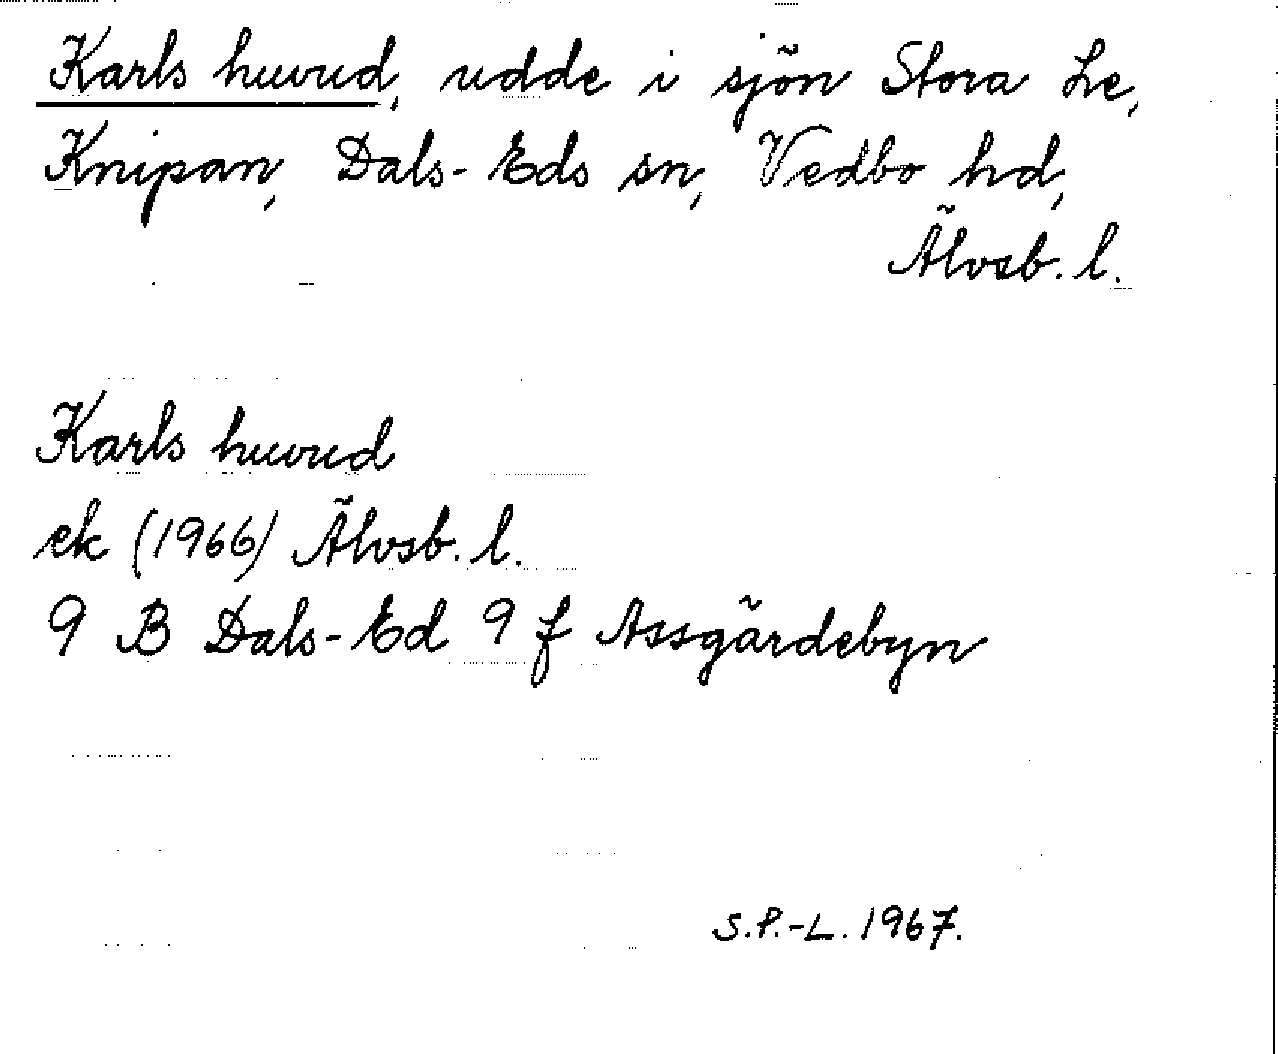 Karls huvud, udde i sjön Stora Le,
Knipan, Dals-Eds sn, Vedbo hd,
Älvsb. l.
Karls huvud
ek (1966) Älvsb. l.
9 B Dals-Ed 9 f Assgärdebyn
S.P.-L. 1967.